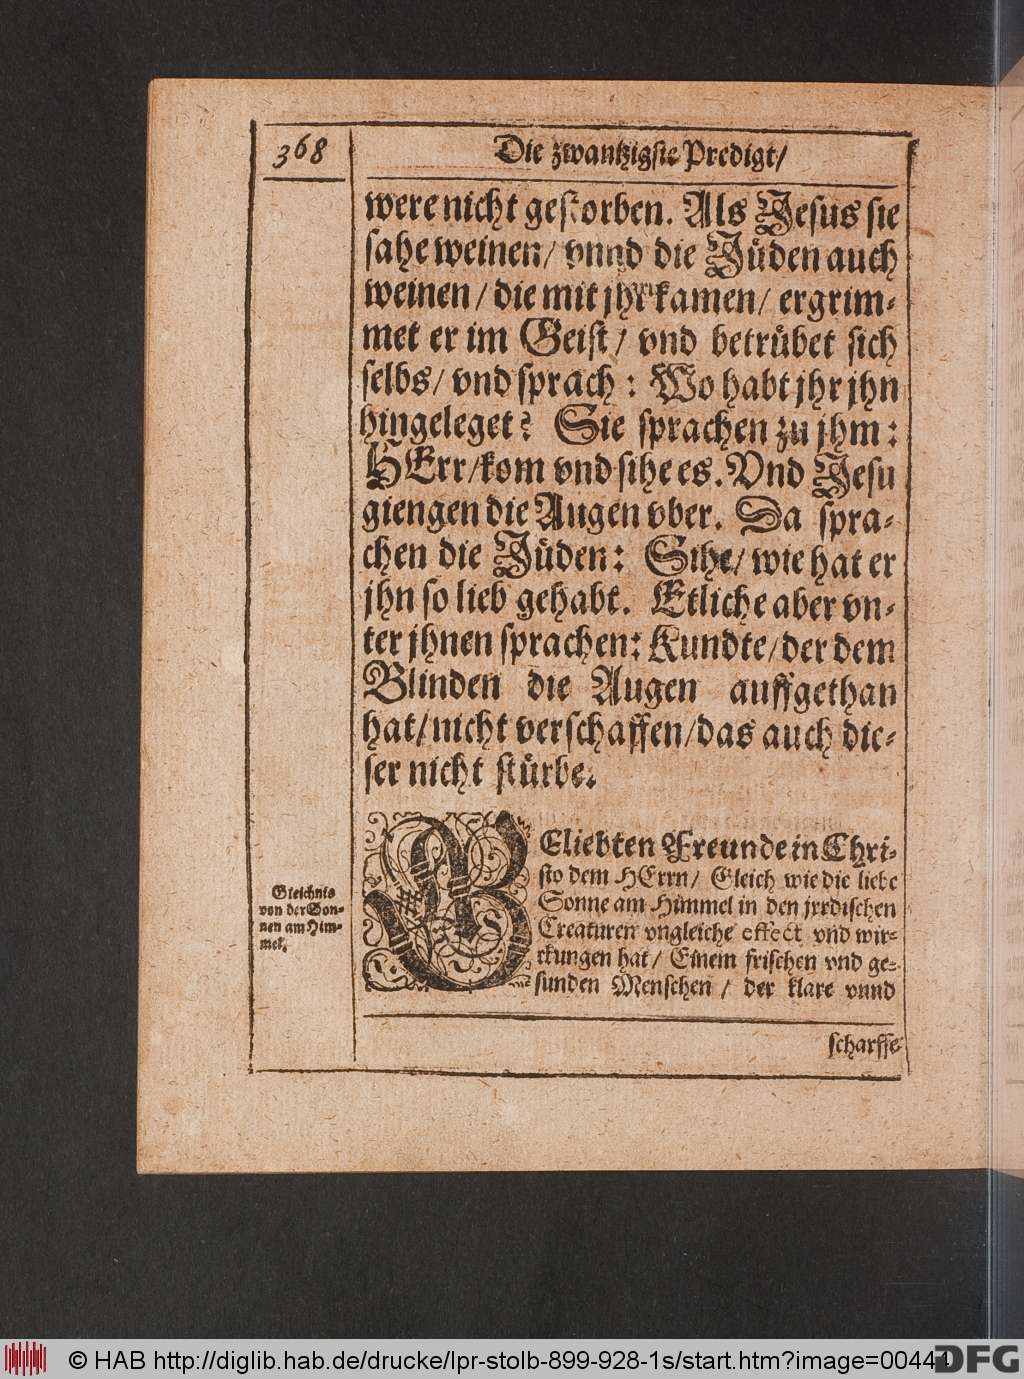 368
Die zwantzigste Predigt/
were nicht gestorben. Als Jesus sie
sahe weinen/ vnnd die Jüden auch
weinen/ die mit jhr kamen/ ergrim-
met er im Geist/ vnd betrübet sich
selbs/ vnd sprach: Wo habt jhr jhn
hingeleget? Sie sprachen zu jhm:
HErr/kom vnd sihe es. Vnd Jesu
giengen die Augen vber. Da spra-
chen die Jüden: Sihe/ wie hat er
jhn so lieb gehabt. Etliche aber vn-
ter jhnen sprachen: Kundte/der dem
Blinden die Augen auffgethan
hat/nicht verschaffen/das auch die-
ser nicht stürbe.
BEliebten Freunde in Chri-
sto dem HErrn/ Gleich wie die liebe
Sonne am Himmel in den jrrdischen
Creaturen vngleiche effect vnd wir-
rkungen hat/ Einem frischen vnd ge-
sunden Menschen/ der klare vnnd
Gleichnis
von der Son-
nen am Him-
mel.
scharffe
© HAB http://diglib.hab.de/drucke/lpr-stolb-899-928-1s/start.htm?image=00444
DFG